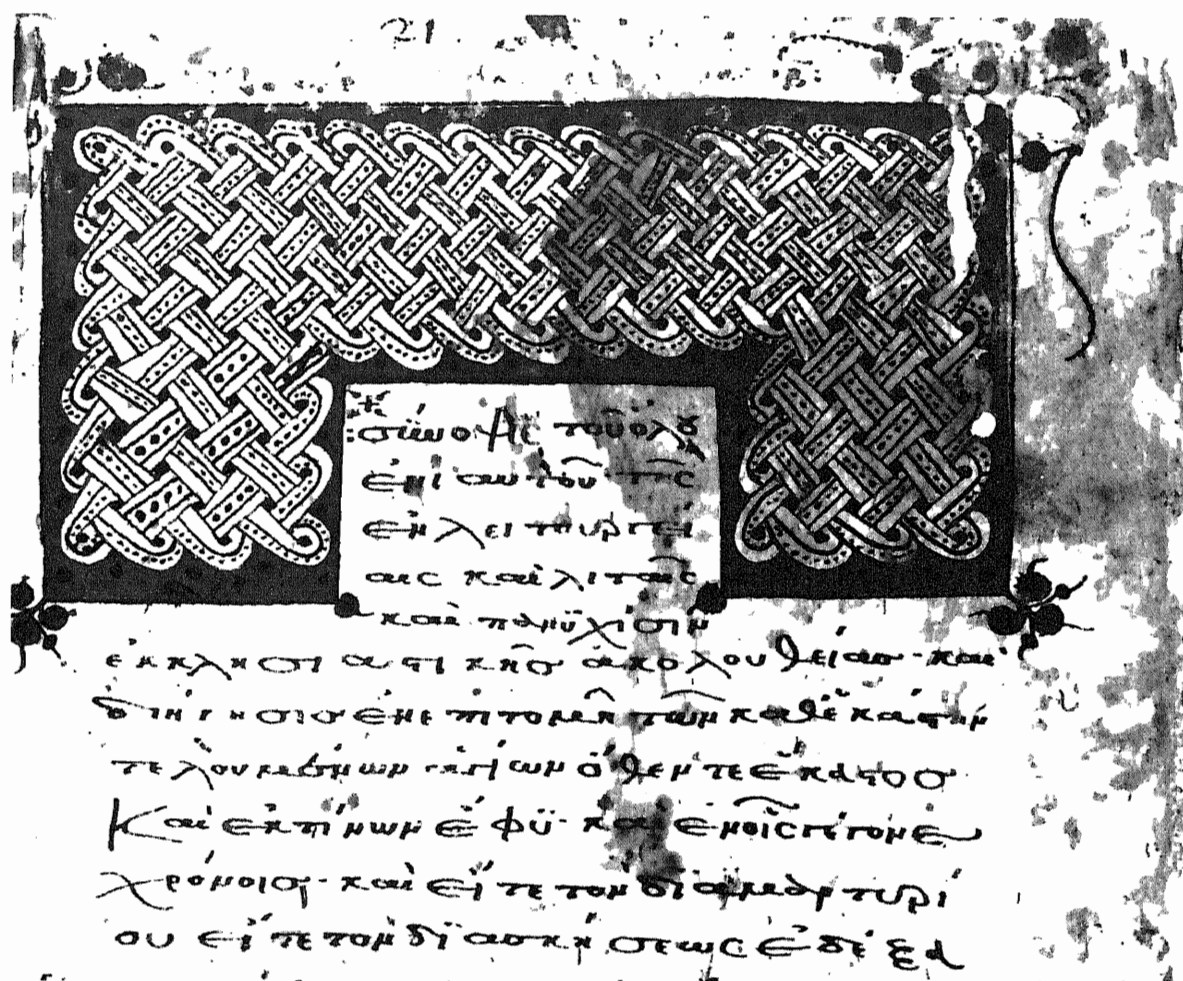 21
β
σύνοψις τοῦ ὅλου
ἐνιαυτοῦ τῆς
ἐν λειτουργί
αις καὶ λιταῖς
καὶ παννυχίσιν
ἐκκλησιαστικῆσ ἀκολουθείασ · καὶ
διήγησισ ἐν ἐπιτομῆ τῶν καθ ἑκάστην
τελουμένων ἁγίων ὅθεν τε ἕκαστοσ
Καὶ ἐκ τίνων ἔφυ · καὶ ἐν οἷς γέγονε
χρόνοισ · καὶ εἴτε τὸν διὰ μαρτυρί
ου εἴτε τὸν δι ἀσκήσεως ἐδέξα